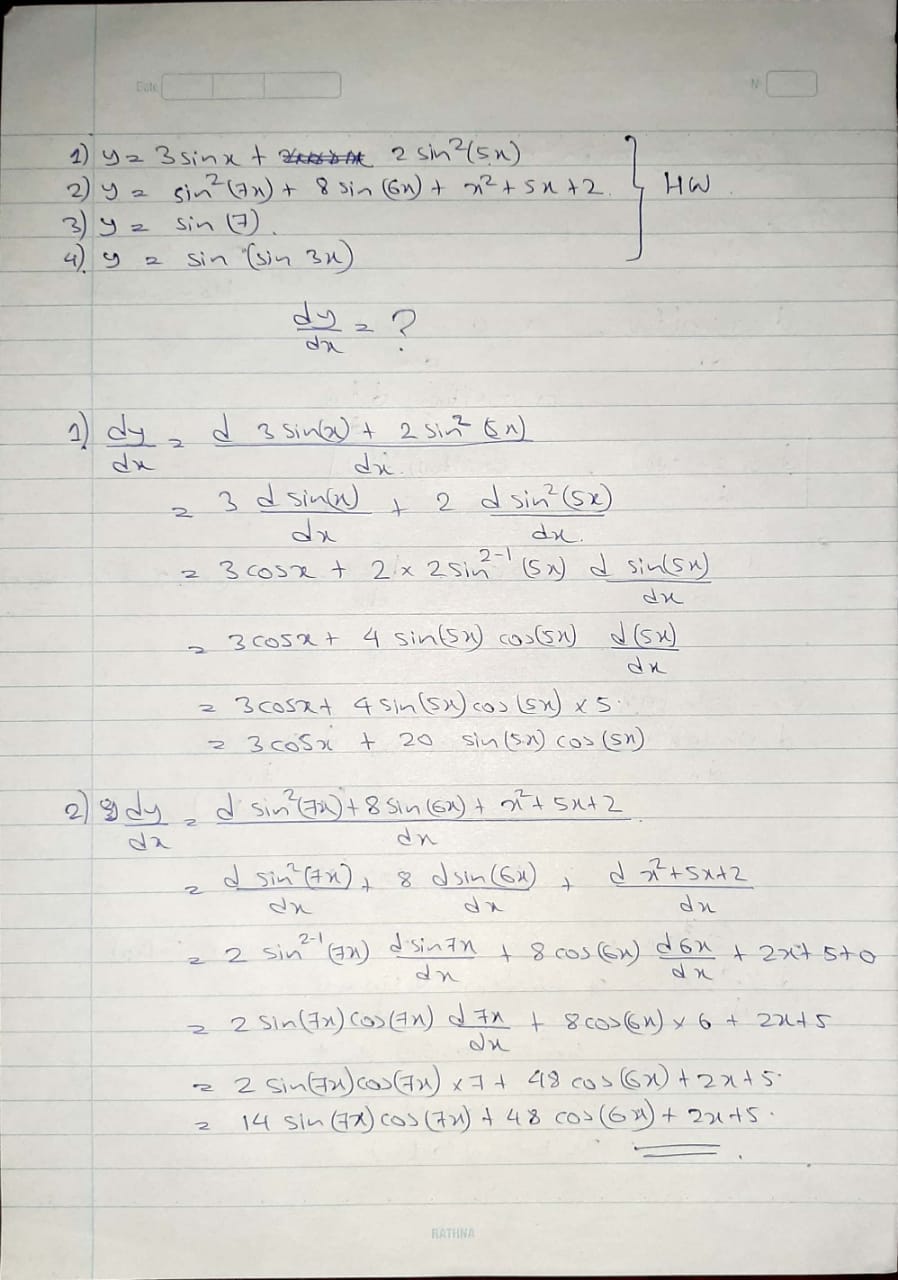 Date
N
1) y = 3 sin x + 2 sin²(5x)
2) y = sin²(7x) + 8 sin(6x) + x² + 5x + 2. } HW.
3) y = sin(7).
4) y = sin(sin 3x)
dy/dx = ?
1) dy/dx = d 3 sin(x) + 2 sin²(5x)/dx.
= 3 d sin(x)/dx + 2 d sin²(5x)/dx.
= 3 cosx + 2 × 2 sin²⁻¹(5x) d sin(5x)/dx
= 3 cosx + 4 sin(5x) cos(5x) d(5x)/dx
= 3 cosx + 4 sin(5x) cos(5x) × 5.
= 3 cosx + 20 sin(5x) cos(5x)
2) dy/dx = d sin²(7x) + 8 sin(6x) + x² + 5x + 2/dx.
= d sin²(7x)/dx + 8 d sin(6x)/dx + d x² + 5x + 2/dx
= 2 sin²⁻¹(7x) d sin 7x/dx + 8 cos(6x) d 6x/dx + 2x + 5 + 0
= 2 sin(7x) cos(7x) d 7x/dx + 8 cos(6x) × 6 + 2x + 5
= 2 sin(7x) cos(7x) × 7 + 48 cos(6x) + 2x + 5.
= 14 sin(7x) cos(7x) + 48 cos(6x) + 2x + 5.
RATHNA